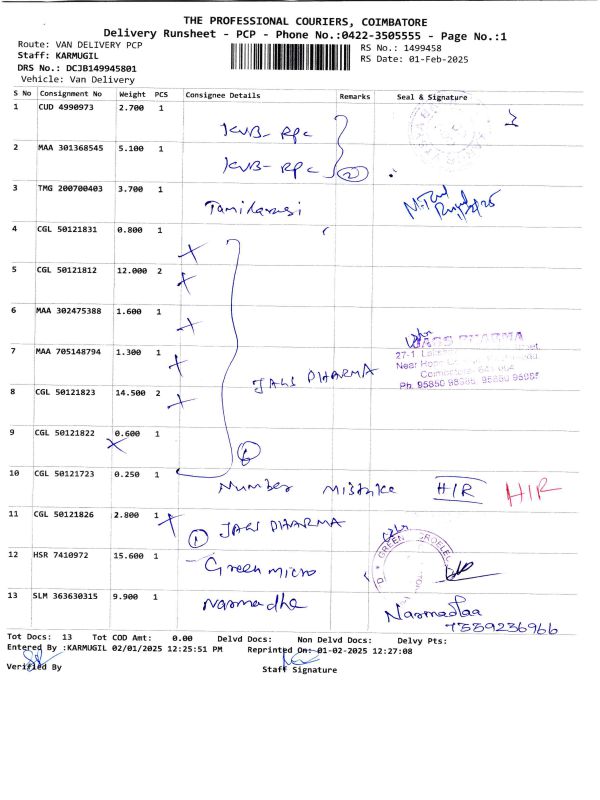 THE PROFESSIONAL COURIERS, COIMBATORE
Delivery Runsheet - PCP - Phone No.:0422-3505555 - Page No.:1
Route: VAN DELIVERY PCP
Staff: KARMUGIL
DRS No.: DCJB149945801
Vehicle: Van Delivery
RS No.: 1499458
RS Date: 01-Feb-2025
S No Consignment No Weight PCS Consignee Details Remarks Seal & Signature
1 CUD 4990973 2.700 1
KVB- RPC
2 MAA 301368545 5.100 1
KVB- RPC 2
3 TMG 200700403 3.700 1
Tamilarasi
4 CGL 50121831 0.800 1
5 CGL 50121812 12.000 2
6 MAA 302475388 1.600 1
JAGS PHARMA
7 MAA 705148794 1.300 1
JAGS PHARMA
Ph. 95850
8 CGL 50121823 14.500 2
9 CGL 50121822 0.600 1
6
10 CGL 50121723 0.250 1
Number Mistake HIR HIR
11 CGL 50121826 2.800 1
1 JAGS PHARMA
12 HSR 7410972 15.600 1
Green micro
GREEN
13 SLM 363630315 9.900 1
Narmadha
Narmadaa
7339236966
Tot Docs: 13 Tot COD Amt: 0.00 Delvd Docs: Non Delvd Docs: Delvy Pts:
Entered By :KARMUGIL 02/01/2025 12:25:51 PM Reprinted On: 01-02-2025 12:27:08
Verified By Staff Signature